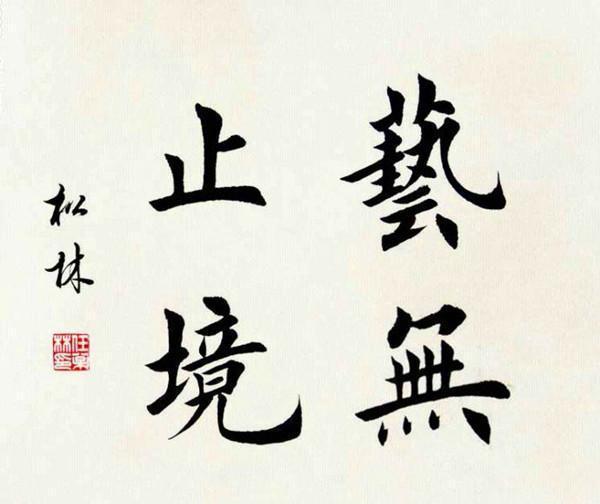 藝無
止境
松林